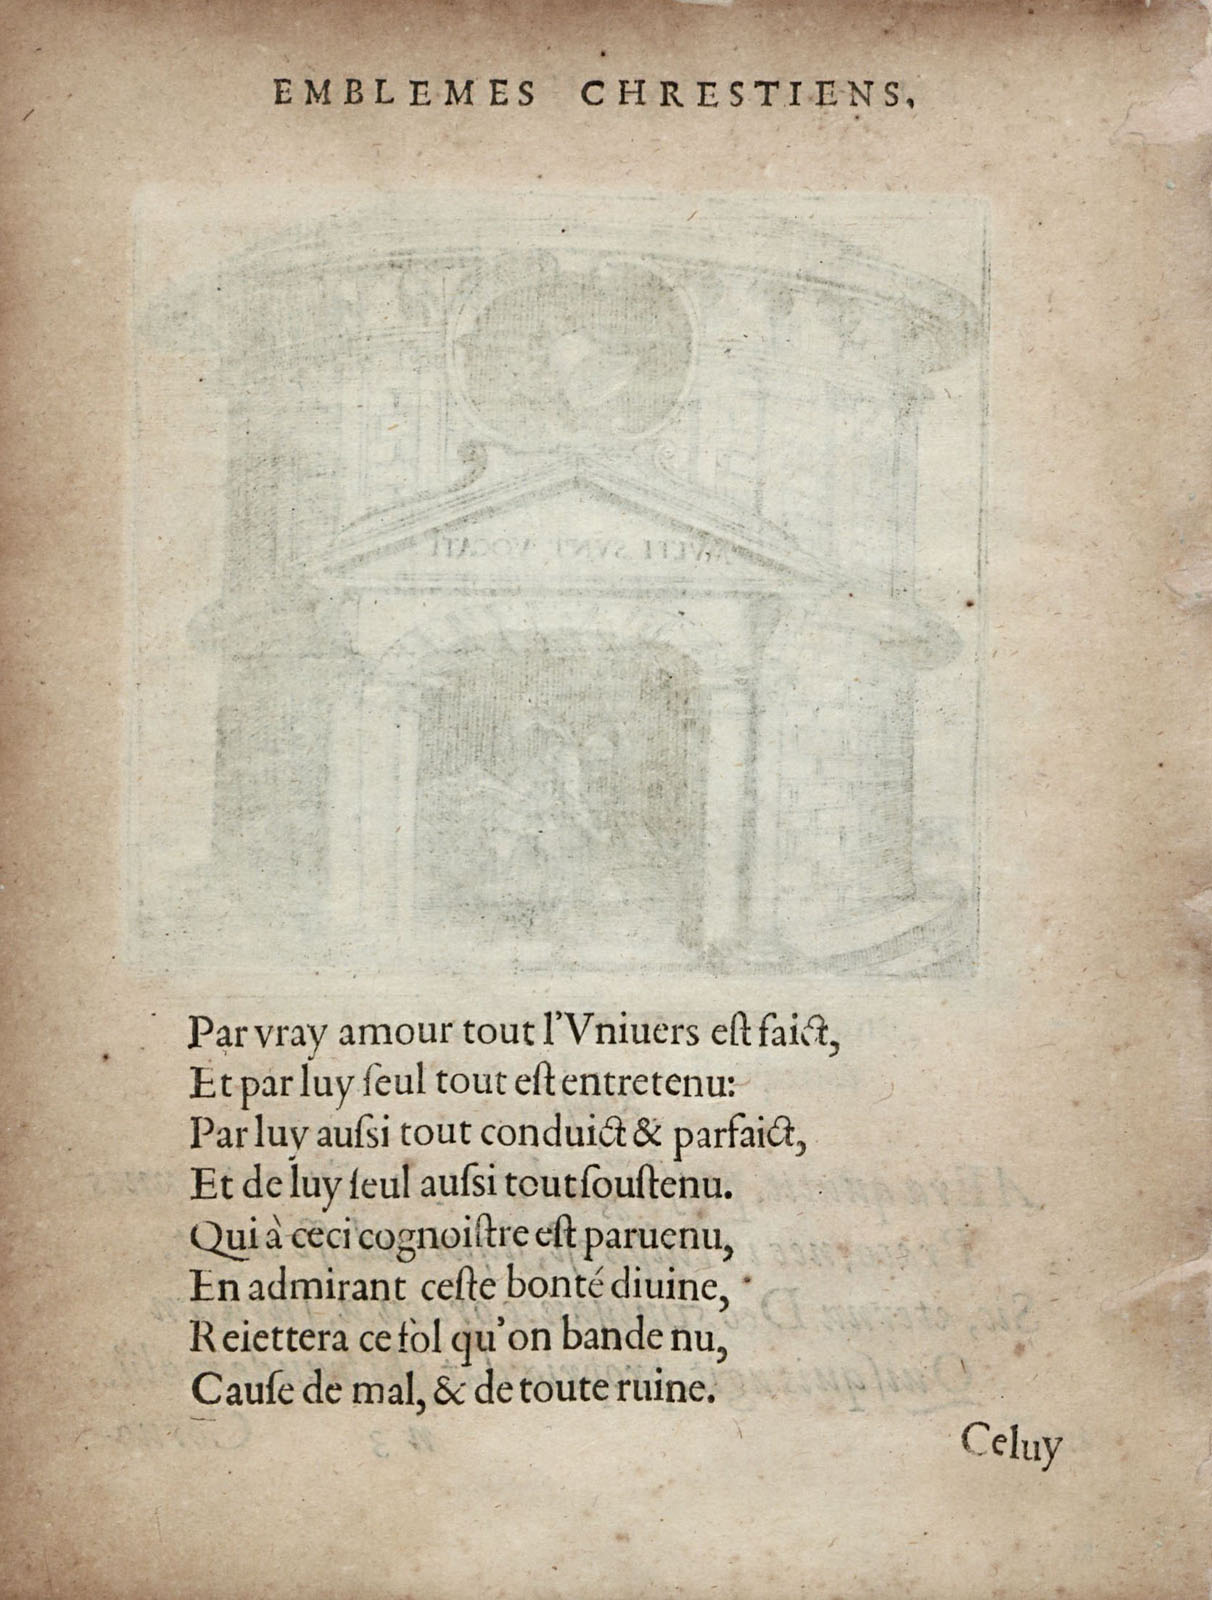 EMBLEMES CHRESTIENS,
MVLTI SVNT VOCATI
Par vray amour tout l'Vniuers eſt faict,
Et par luy ſeul tout eſt entretenu:
Par luy auſsi tout conduict & parfaict,
Et de luy ſeul auſsi tout ſouſtenu.
Qui à ceci cognoiſtre eſt paruenu,
En admirant ceſte bonté diuine,
Reiettera ce fol qu'on bande nu,
Cauſe de mal, & de toute ruine.
Celuy